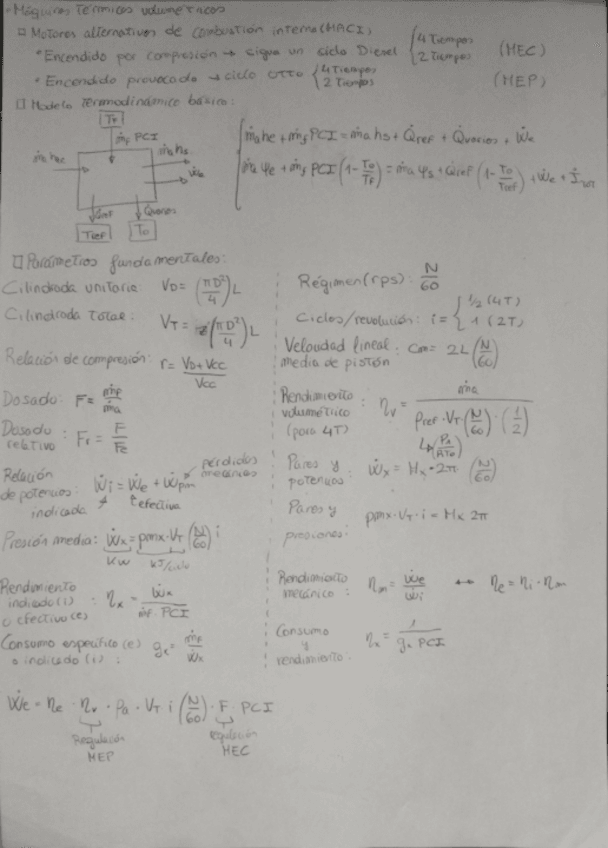 • Máquinas Térmicas volumétricas
□ Motores alternativos de combustión interna (MACI)
• Encendido por compresión → sigue un ciclo Diesel { 4 Tiempos 2 Tiempos (MEC)
• Encendido provocado → ciclo OTTO { 4 Tiempos 2 Tiempos (MEP)
□ Modelo Termodinámico básico:
TF
ṁf PCI
ṁa he
ṁa hs
Ẇe
Q̇ref Q̇varios
Tref T0
ṁa he + ṁf PCI = ṁa hs + Q̇ref + Q̇varios + Ẇe
ṁa φe + ṁf PCI (1 - T0/TF) = ṁa φs + Q̇ref (1 - T0/Tref) + Ẇe + İ
□ Parámetros fundamentales:
Cilindrada unitaria: VD = (πD²/4) L
Cilindrada Total: VT = z (πD²/4) L
Relación de compresión: r = VD + Vcc / Vcc
Dosado: F = ṁf / ṁa
Dosado relativo: Fr = F / Fe
Relación de potencias: Ẇi = Ẇe + Ẇpm
pérdidas mecánicas
indicada efectiva
Presión media: Ẇx = pmx · VT (N/60) i
KW KJ/ciclo
Rendimiento indicado (i) o efectivo (e) : ηx = Ẇx / ṁf · PCI
Consumo específico (e) o indicado (i) : gx = ṁf / Ẇx
Régimen (rps): N/60
Ciclos/revolución: i = { 1/2 (4T) 1 (2T)
Velocidad lineal media de pistón : Cm = 2L (N/60)
Rendimiento volumétrico (para 4T) : ηv = ṁa / ρref · VT (N/60) · (1/2)
↳ (Pa/RTa)
Pares y potencias : Ẇx = Mx · 2π (N/60)
Pares y presiones: pmx · VT · i = Mx 2π
Rendimiento mecánico : ηm = Ẇe / Ẇi ↔ ηe = ηi · ηm
Consumo y rendimiento: ηx = 1 / gx PCI
Ẇe = ηe · ηv · ρa · VT i (N/60) · F · PCI
Regulación MEP
regulación MEC